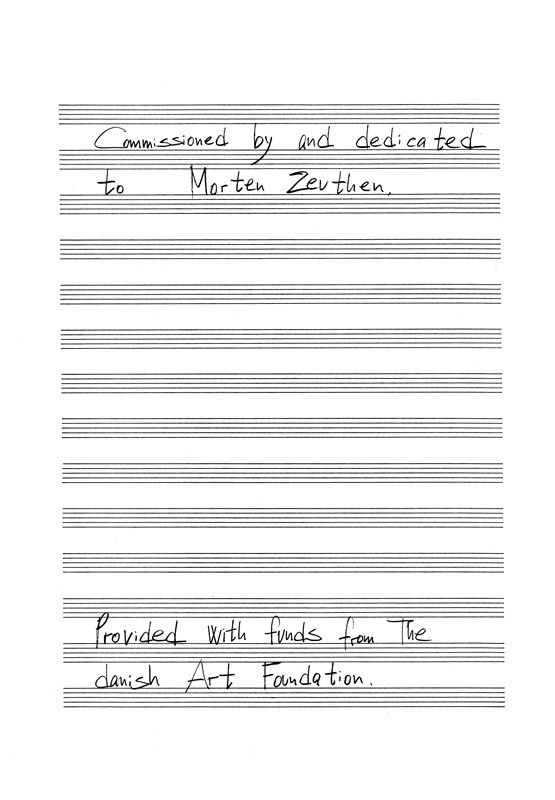 Commissioned by and dedicated
to Morten Zeuthen.
Provided with funds from The
danish Art Foundation.